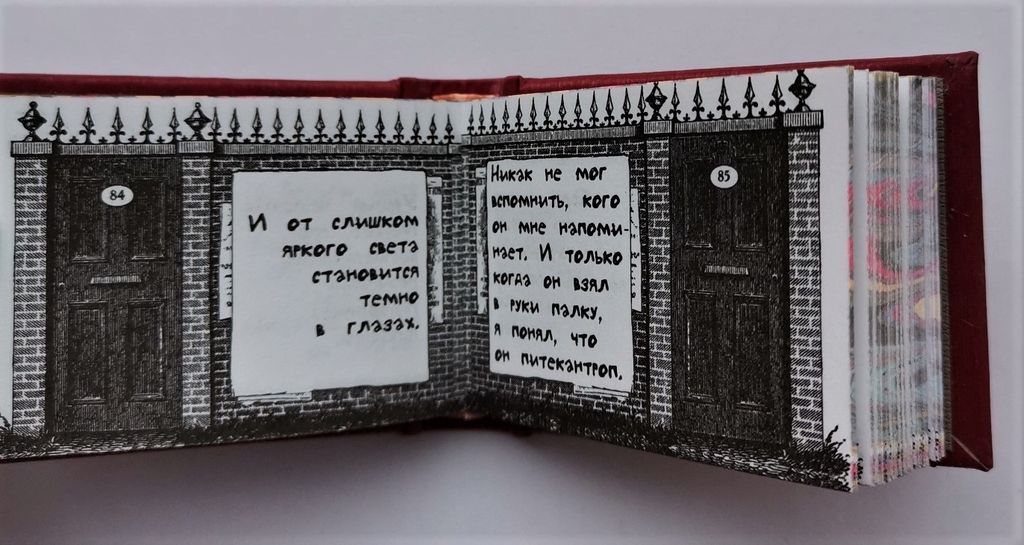 84
И от слишком
яркого света
становится
темно
в глазах.
Никак не мог
вспомнить, кого
он мне напоми-
нает. И только
когда он взял
в руки палку,
я понял, что
он питекантроп.
85